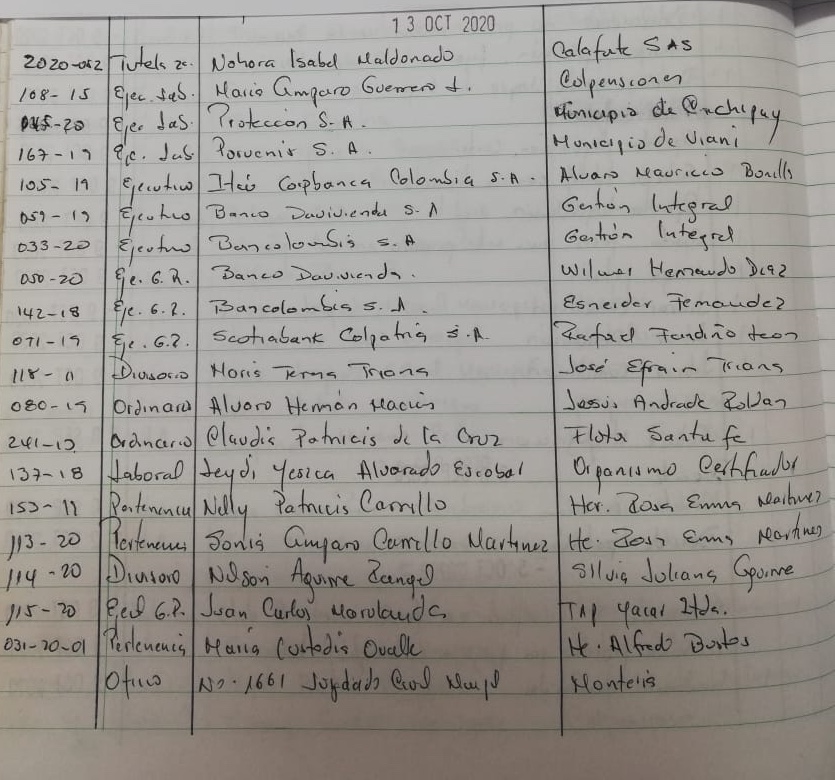 13 OCT 2020
2020-062 Tutela 2a. Nohora Isabel Maldonado Calafate SAS
108-15 Ejec. Lab. Maria Amparo Guerrero L. Colpensiones
045-20 Ejec Lab. Protección S.A. Municipio de Anchipay
167-19 Eje. Lab. Porvenir S.A. Municipio de Viani
105-19 Ejecutivo Itaú Corpbanca Colombia S.A. Alvaro Mauricio Bonilla
059-19 Ejecutivo Banco Davivienda S.A Gestión Integral
033-20 Ejecutivo Bancolombia S.A Gestión Integral
050-20 Eje. G.R. Banco Davivienda. Wilmer Hernando Diaz
142-18 Eje. G.R. Bancolombia S.A. Esneider Fernandez
071-19 Eje. G.R. Scotiabank Colpatria S.A. Rafael Fandiño Leon
118-11 Divisorio Noris Teresa Triana José Efrain Triana
080-19 Ordinario Alvaro Hernán Macias Jesús Andrade Roldan
241-12 Ordinario Claudia Patricia de la Cruz Flota Santa fe
137-18 Laboral Leydi Yesica Alvarado Escobal Organismo Certifiador
153-19 Pertenencia Nelly Patricia Carrillo Her. Rosa Emma Martinez
113-20 Pertenencia Sonia Amparo Carrillo Martinez He. Rosa Emma Martinez
114-20 Divisorio Nelson Aguirre Rangel Silvia Juliana Aguirre
115-20 Ejed G.R. Juan Carlos Marulanda TAP Yacar Ltda.
031-20-01 Pertenencia Maria Custodia Ovalle He. Alfredo Bustos
Oficio No. 1661 Juzgado Civil Mcipl Monteria